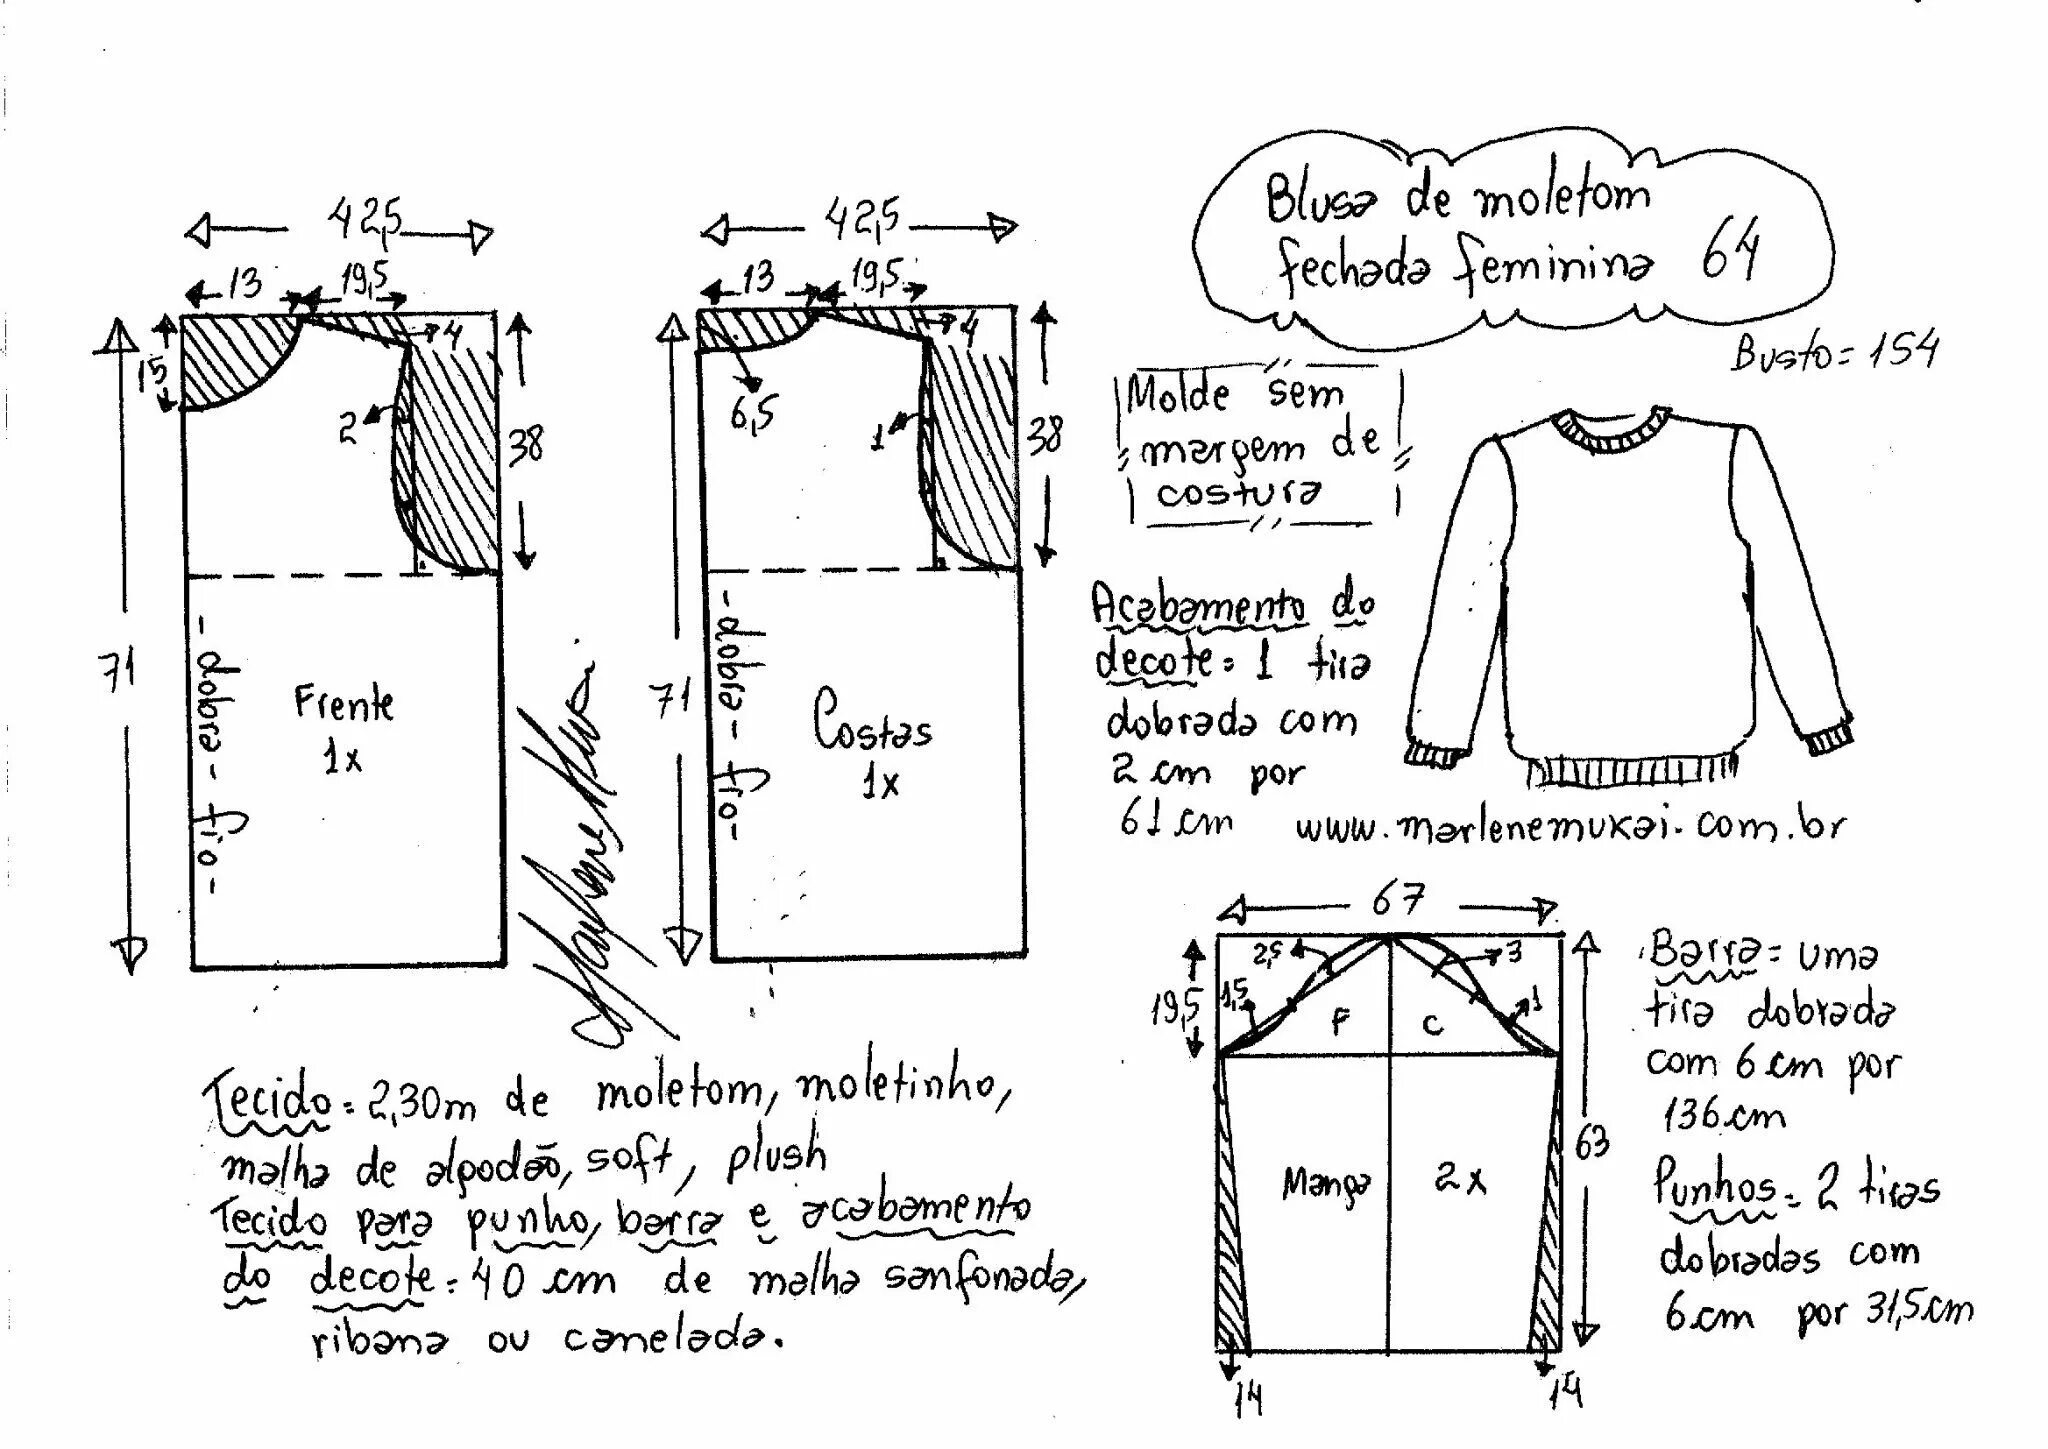 Blusa de moletom
fechada feminina 64
Busto = 154
Molde sem
margem de
costura
42,5
13
19,5
15
4
2
38
71
- dobra - fio -
Frente
1x
42,5
13
19,5
4
6,5
1
38
71
- dobra - fio -
Costas
1x
Acabamento do
decote = 1 tira
dobrada com
2 cm por
61 cm
www.marlenemukai.com.br
67
19,5
2,5
1,5
3
1
F
C
63
Manga
2x
14
14
Barra = uma
tira dobrada
com 6 cm por
136 cm
Punhos = 2 tiras
dobradas com
6 cm por 31,5 cm
Tecido = 2,30m de moletom, moletinho,
malha de algodão, soft, plush
Tecido para punho, barra e acabamento
do decote = 40 cm de malha sanfonada,
ribana ou canelada.